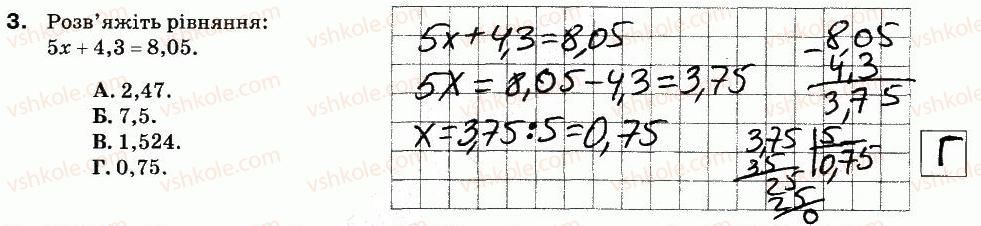 3. Розв’яжіть рівняння:
5x + 4,3 = 8,05.
А. 2,47.
Б. 7,5.
В. 1,524.
Г. 0,75.
5x + 4,3 = 8,05
5x = 8,05 - 4,3 = 3,75
x = 3,75 : 5 = 0,75
- 8,05
4,3
3,75
3,75 | 5
35 | 0,75
25
25
0
Г
vshkole.com